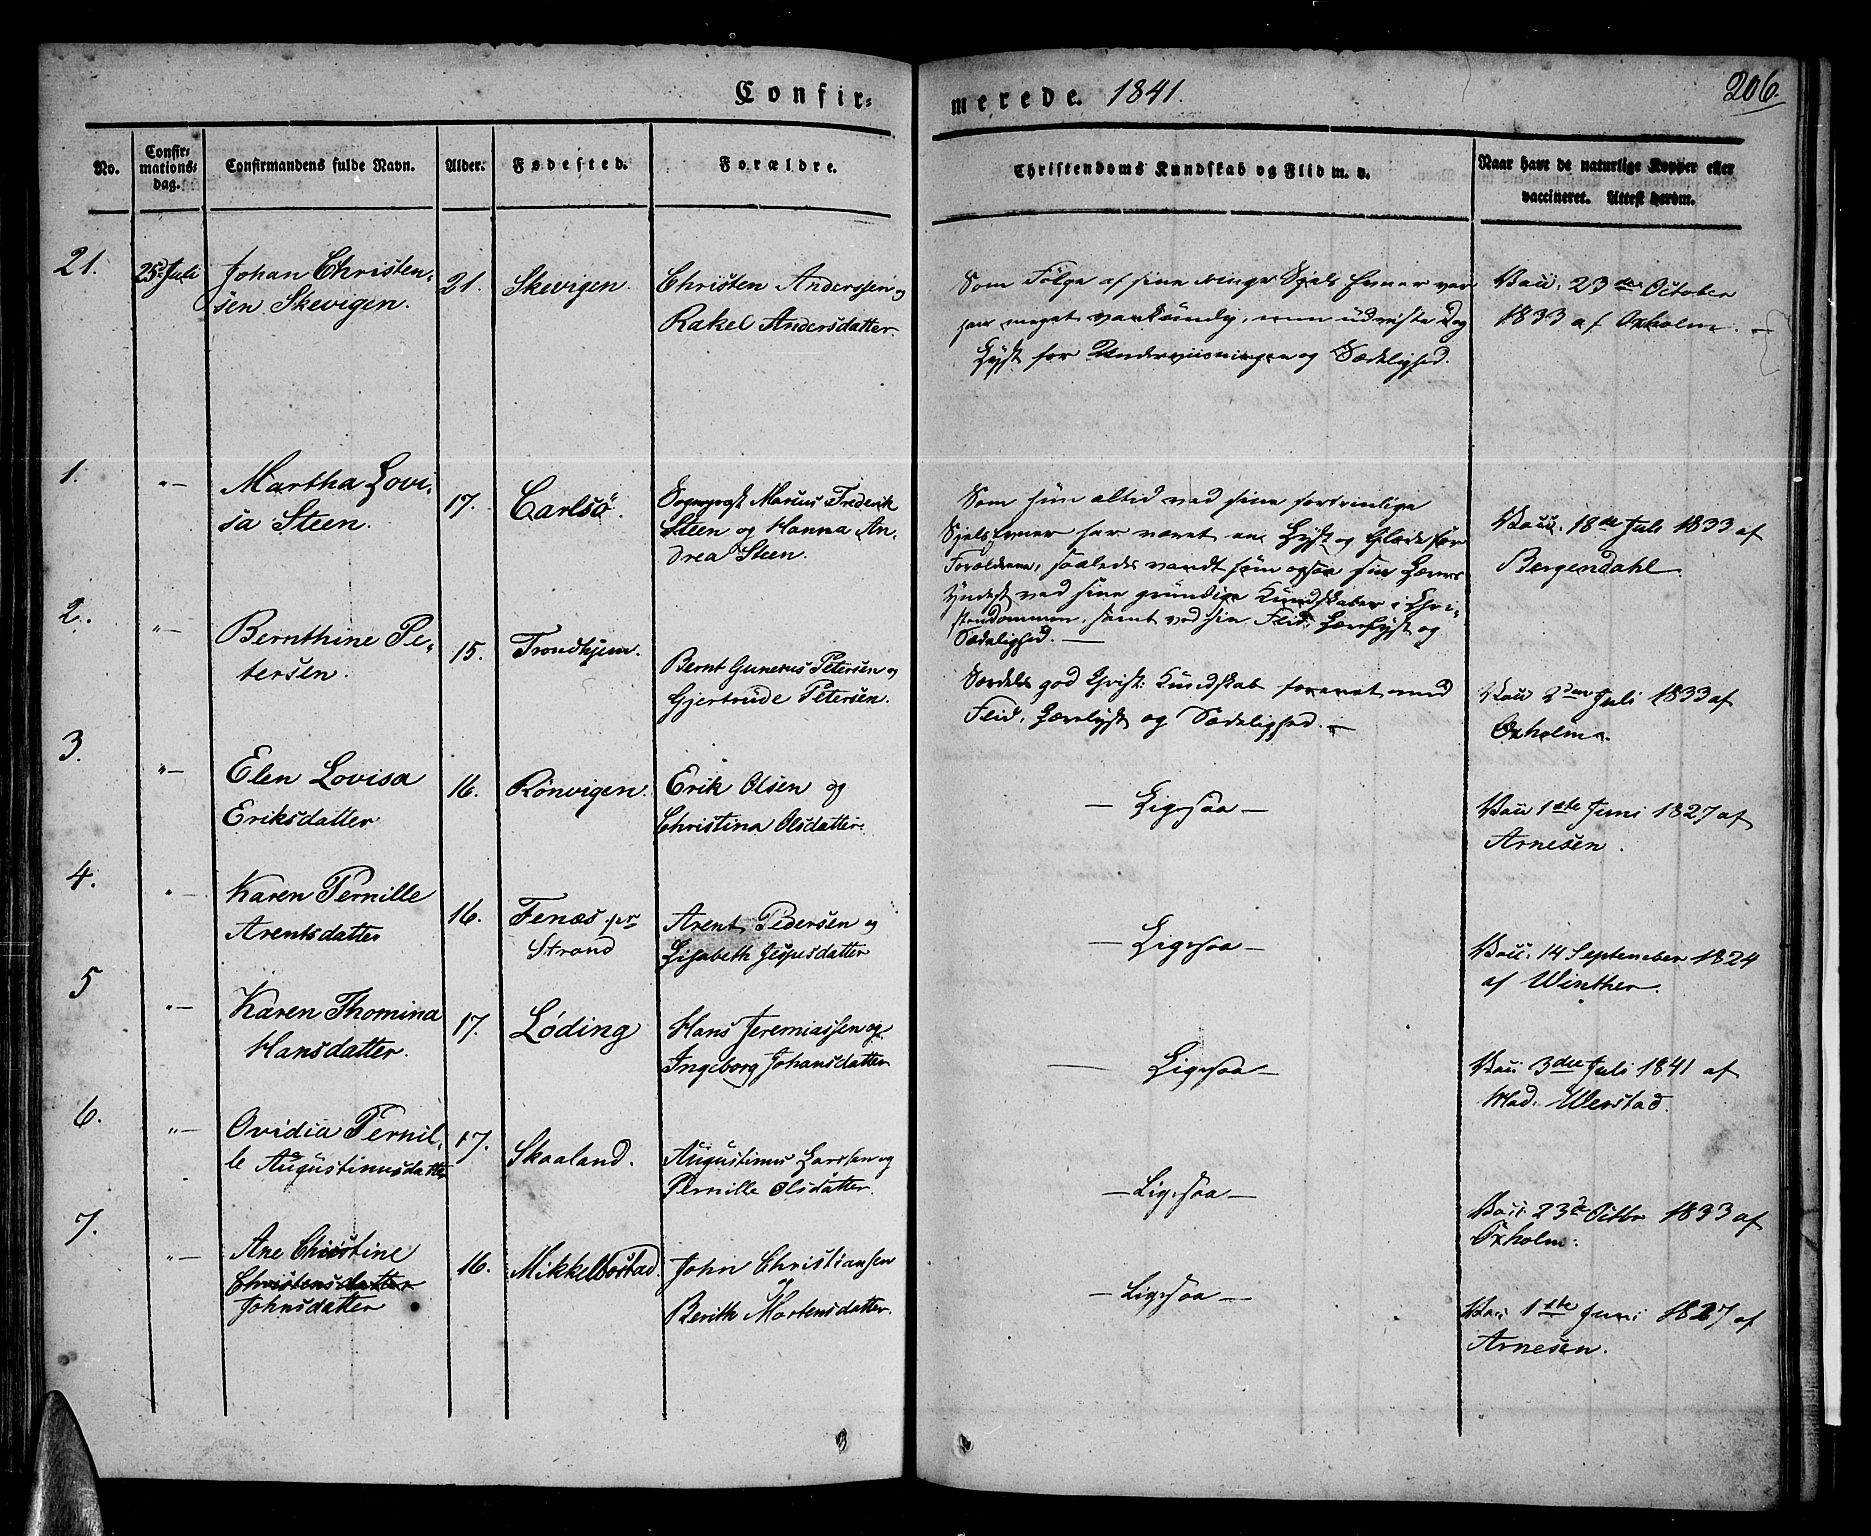 Confir-
merede. 1841.
206.
No.
Confir-
mations-
dag.
Confirmandens fulde Navn.
Alder.
Fødested.
Forældre.
Christendoms Kundskab og Flid m. v.
Naar havt de naturlige Kopper eller
vaccineret. Attest herom.
21.
25 Juli
Johan Christen-
sen Skevigen.
21.
Skevigen.
Christen Anderssen og
Rakel Andersdatter
Som Følge af sine ringe Sjels Evner var
han meget vankundig, men udviste dog
Lyst for Underviisningen og Sædelighed.
Vacc. 23de October
1833 af Oxholm.
1.
"—
Martha Lovi-
sa Steen.
17.
Carlsö.
Sogneprest Marcus Frederik
Steen og Hanna An-
drea Steen.
Som hun altid ved sine fortrinlige
Sjels Evner har været en Lyst og Glæde for
Forældrene, saaledes vandt hun ogsaa sin Lærers
Yndest ved sine grundige Kundskaber i Chri-
stendommen, samt ved sin Flid, Lærelyst og
Sædelighed. —
Vacc. 18de Juli 1833 af
Bergendahl.
2.
"—
Bernthine Pe-
tersen.
15.
Trondhjem.
Bernt Gunerus Petersen og
Gjertrude Petersen.
Særdeles god Christ: Kundskab forenet med
Flid, Lærelyst og Sædelighed. —
Vacc 2den Juli 1833 af
Oxholm.
3.
"—
Elen Lovisa
Eriksdatter
16.
Rønvigen.
Erik Olsen og
Christina Olsdatter.
— Ligesaa —
Vacc 1ste Juni 1827 af
Arnesen.
4.
"—
Karen Pernille
Arentsdatter
16.
Fenæs pr
Strand
Arent Pedersen og
Lisabeth Jespersdatter
— Ligesaa —
Vacc. 14 September 1824
af Winther.
5
"—
Karen Thomina
Hansdatter.
17.
Løding
Hans Jeremiassen og
Ingeborg Johansdatter
— Ligesaa —
Vacc 3die Juli 1841 af
Mad. Werstad.
6.
"—
Ovidia Pernil-
le Augustinusdatter
17.
Skaaland.
Augustinus Larssen og
Pernille Olsdatter.
— Ligesaa —
Vacc. 23d Octbr 1833 af
Oxholm.
7.
"—
Ane Christine
Christensdatter
Johnsdatter
16.
Mikkelbostad
John Christiansen
og
Berith Mortensdatter.
— Ligesaa —
Vacc 1ste Juni 1827 af
Arnesen.